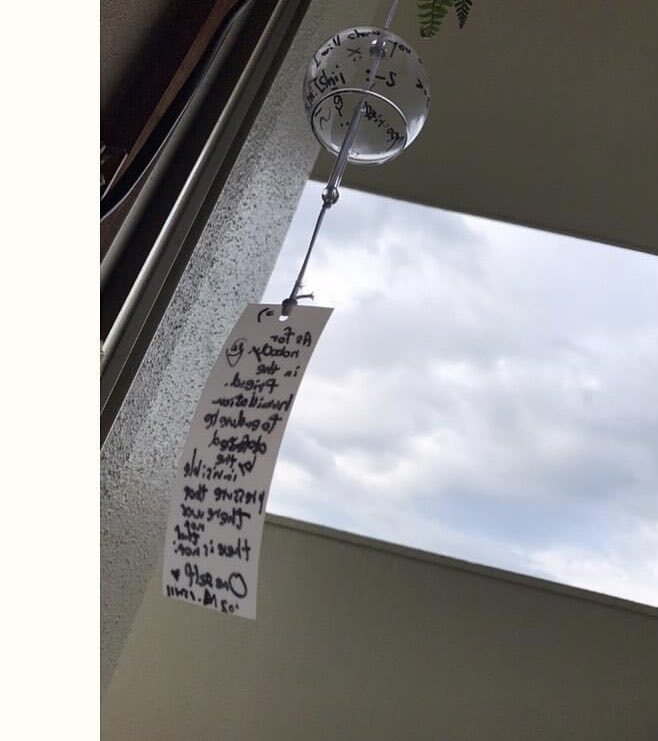 I will show you
Ishii :-S
As for
nobody
in the
friend.
humiliation
to endure be
defeated
by the
invisible
pressure that
there was
not
that
there is not.
Oneself ♥